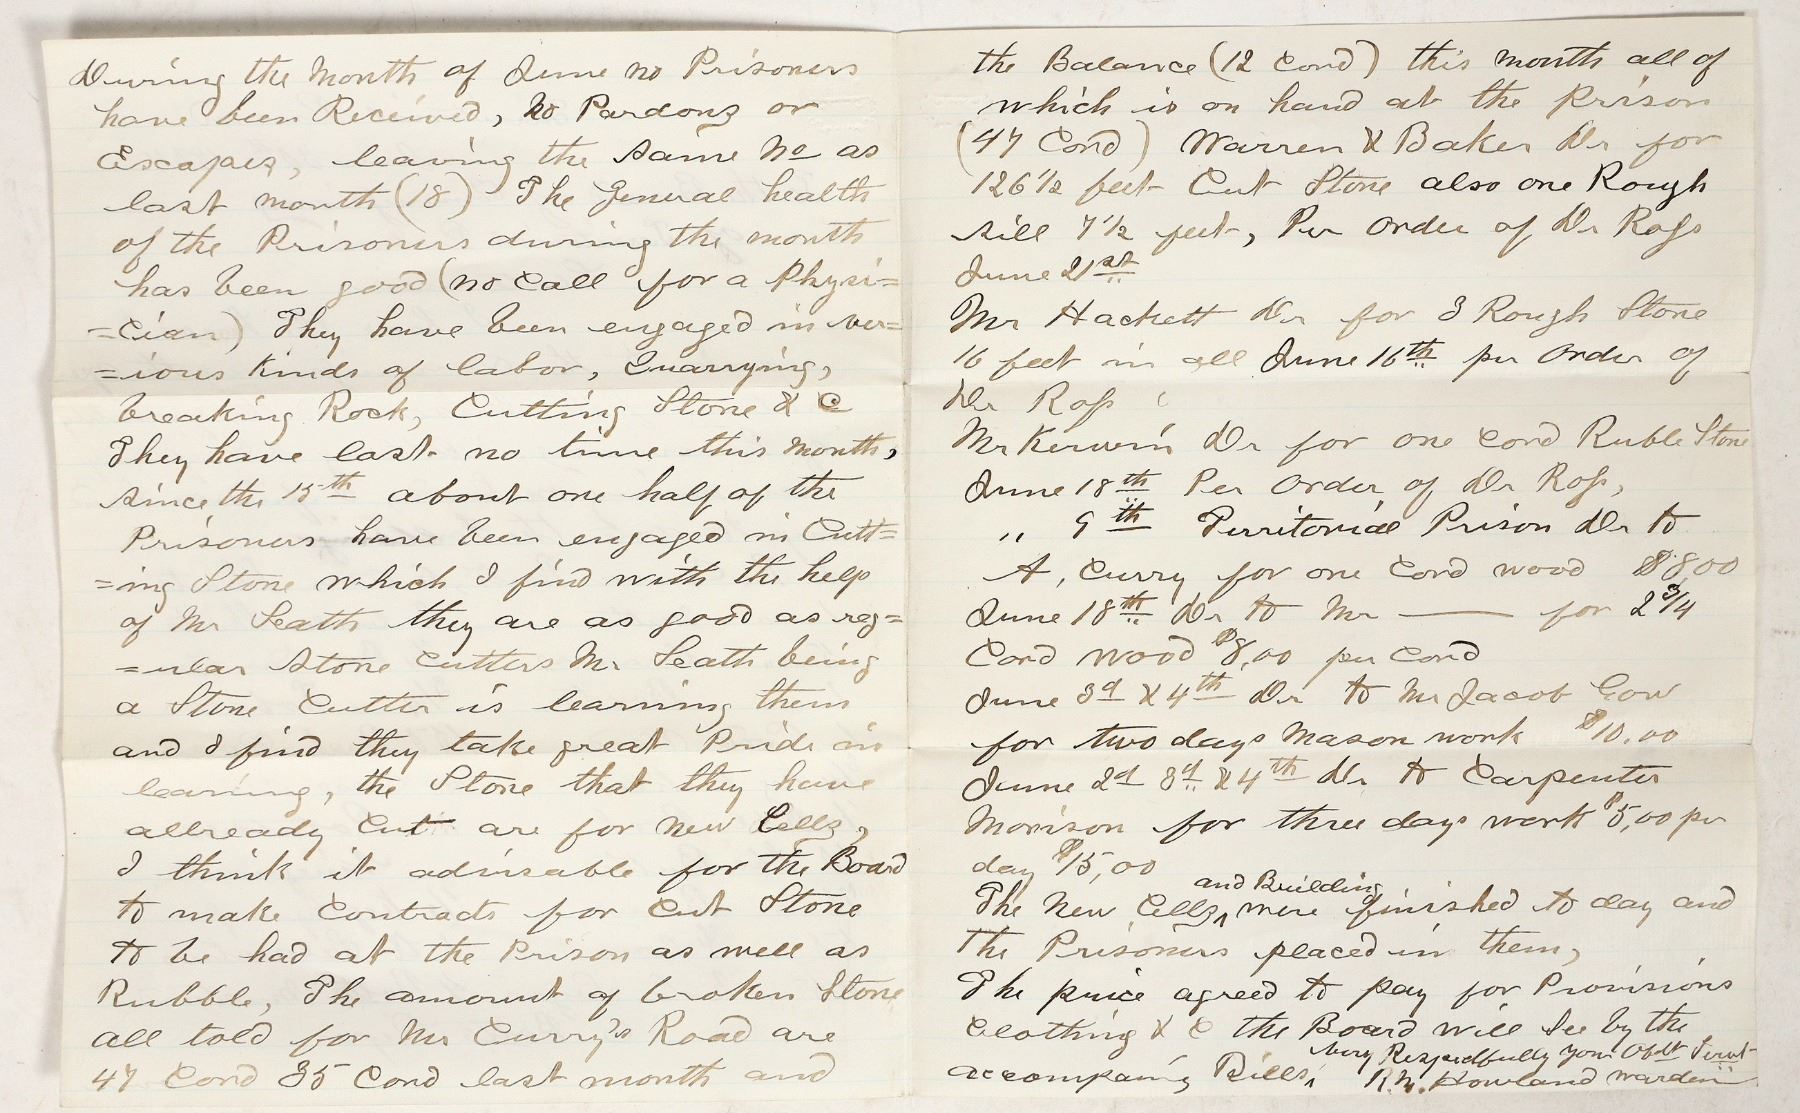 During the Month of June no Prisoners
have been Received, No Pardons or
Escapes, leaving the same No as
last month (18) The General health
of the Prisoners during the month
has been good (no call for a Physi-
=cian) They have been engaged in ver=
=ious Kinds of labor, Quarrying,
breaking Rock, Cutting Stone & C
They have last no time this Month,
since the 15th about one half of the
Prisoners have been engaged in Cutt=
=ing Stone which I find with the help
of Mr Seath they are as good as reg=
=ular Stone Cutters Mr Seath being
a Stone Cutter is learning them
and I find they take great Pride in
learning, the Stone that they have
allready Cut are for New Cells,
I think it advisable for the Board
to make Contracts for Cut Stone
to be had at the Prison as well as
Rubble, The amount of broken Stone
all told for Mr Curry's Road are
47 Cord 35 Cord last month and
the Balance (12 Cord) this month all of
which is on hand at the Prison
(47 Cord) Warren & Baker Dr for
126 1/2 feet Cut Stone also one Rough
sill 7 1/2 feet, Per Order of Dr Ross
June 21st
Mr Hackett Dr for 3 Rough Stone
16 feet in all June 16th per Order of
Dr Ross
Mr Kerwin Dr for one Cord Ruble Stone
June 18th Per Order of Dr Ross,
" 9th Territorial Prison Dr to
A, Curry for one Cord wood $8,00
June 18th Dr to Mr —— for 2 3/4
Cord wood $8,00 per Cord
June 3d & 4th Dr to Mr Jacob Gow
for two days Mason work $10.00
June 2d 3d & 4th Dr to Carpenter
Morison for three days work $5,00 per
day $15,00
The New Cells and Building were finished to day and
The Prisoners placed in them,
The price agreed to pay for Provisions
Clothing & C the Board will See by the
accompaning Bills, Very Respectfully Your Obdt Servt
R.M. Howland Warden